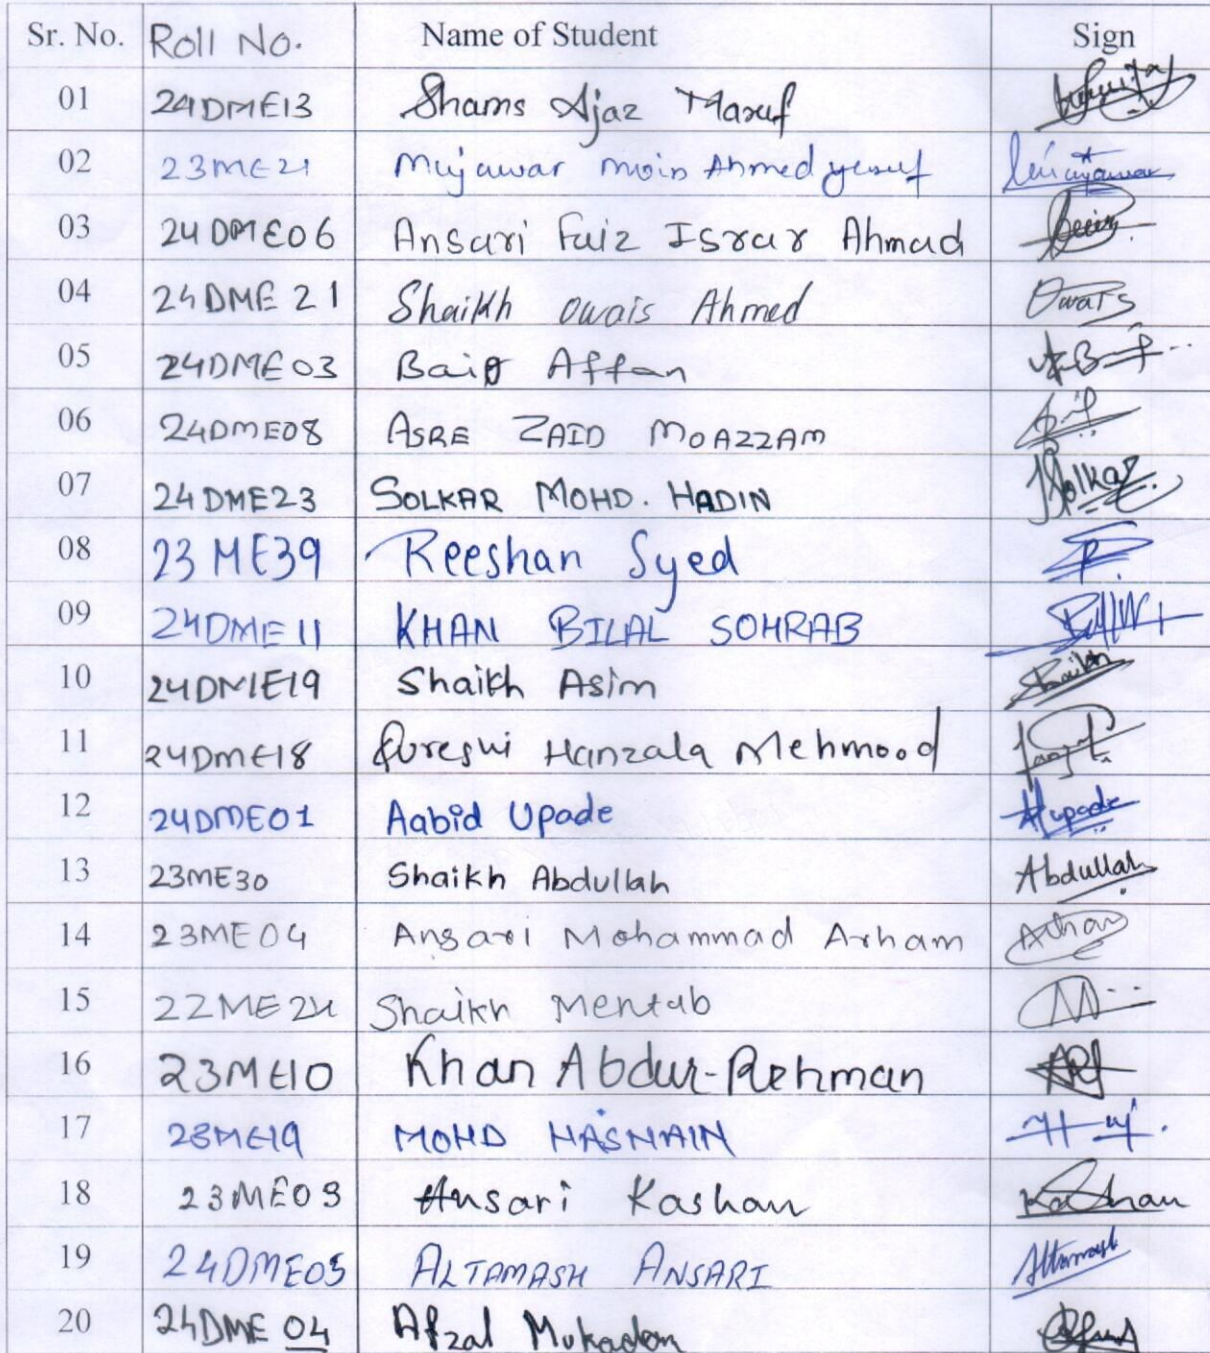 Sr. No. Roll No. Name of Student Sign
01 24DME13 Shams Ajaz Maruf
02 23ME21 Mujawar moin Ahmed yusuf
03 24DME06 Ansari Faiz Israr Ahmad
04 24DME 21 Shaikh owais Ahmed Owais
05 24DME 03 Baig Affan
06 24DME08 ASRE ZAID MOAZZAM
07 24DME23 SOLKAR MOHD. HADIN Solkar
08 23 ME39 Reeshan Syed
09 24DME 11 KHAN BILAL SOHRAB
10 24DME19 Shaikh Asim Shaikh
11 24DME18 Qureshi Hanzala Mehmood
12 24DME01 Aabid Upade AUpade
13 23ME30 Shaikh Abdullah Abdullah
14 23ME04 Ansari Mohammad Arham Arham
15 22ME24 Shaikh Mentab
16 23ME10 Khan Abdur-Rehman
17 23ME19 MOHD HASNAIN
18 23ME03 Ansari Kashan Kashan
19 24DME05 ALTAMASH ANSARI Altamash
20 24DME 04 Afzal Mukadam